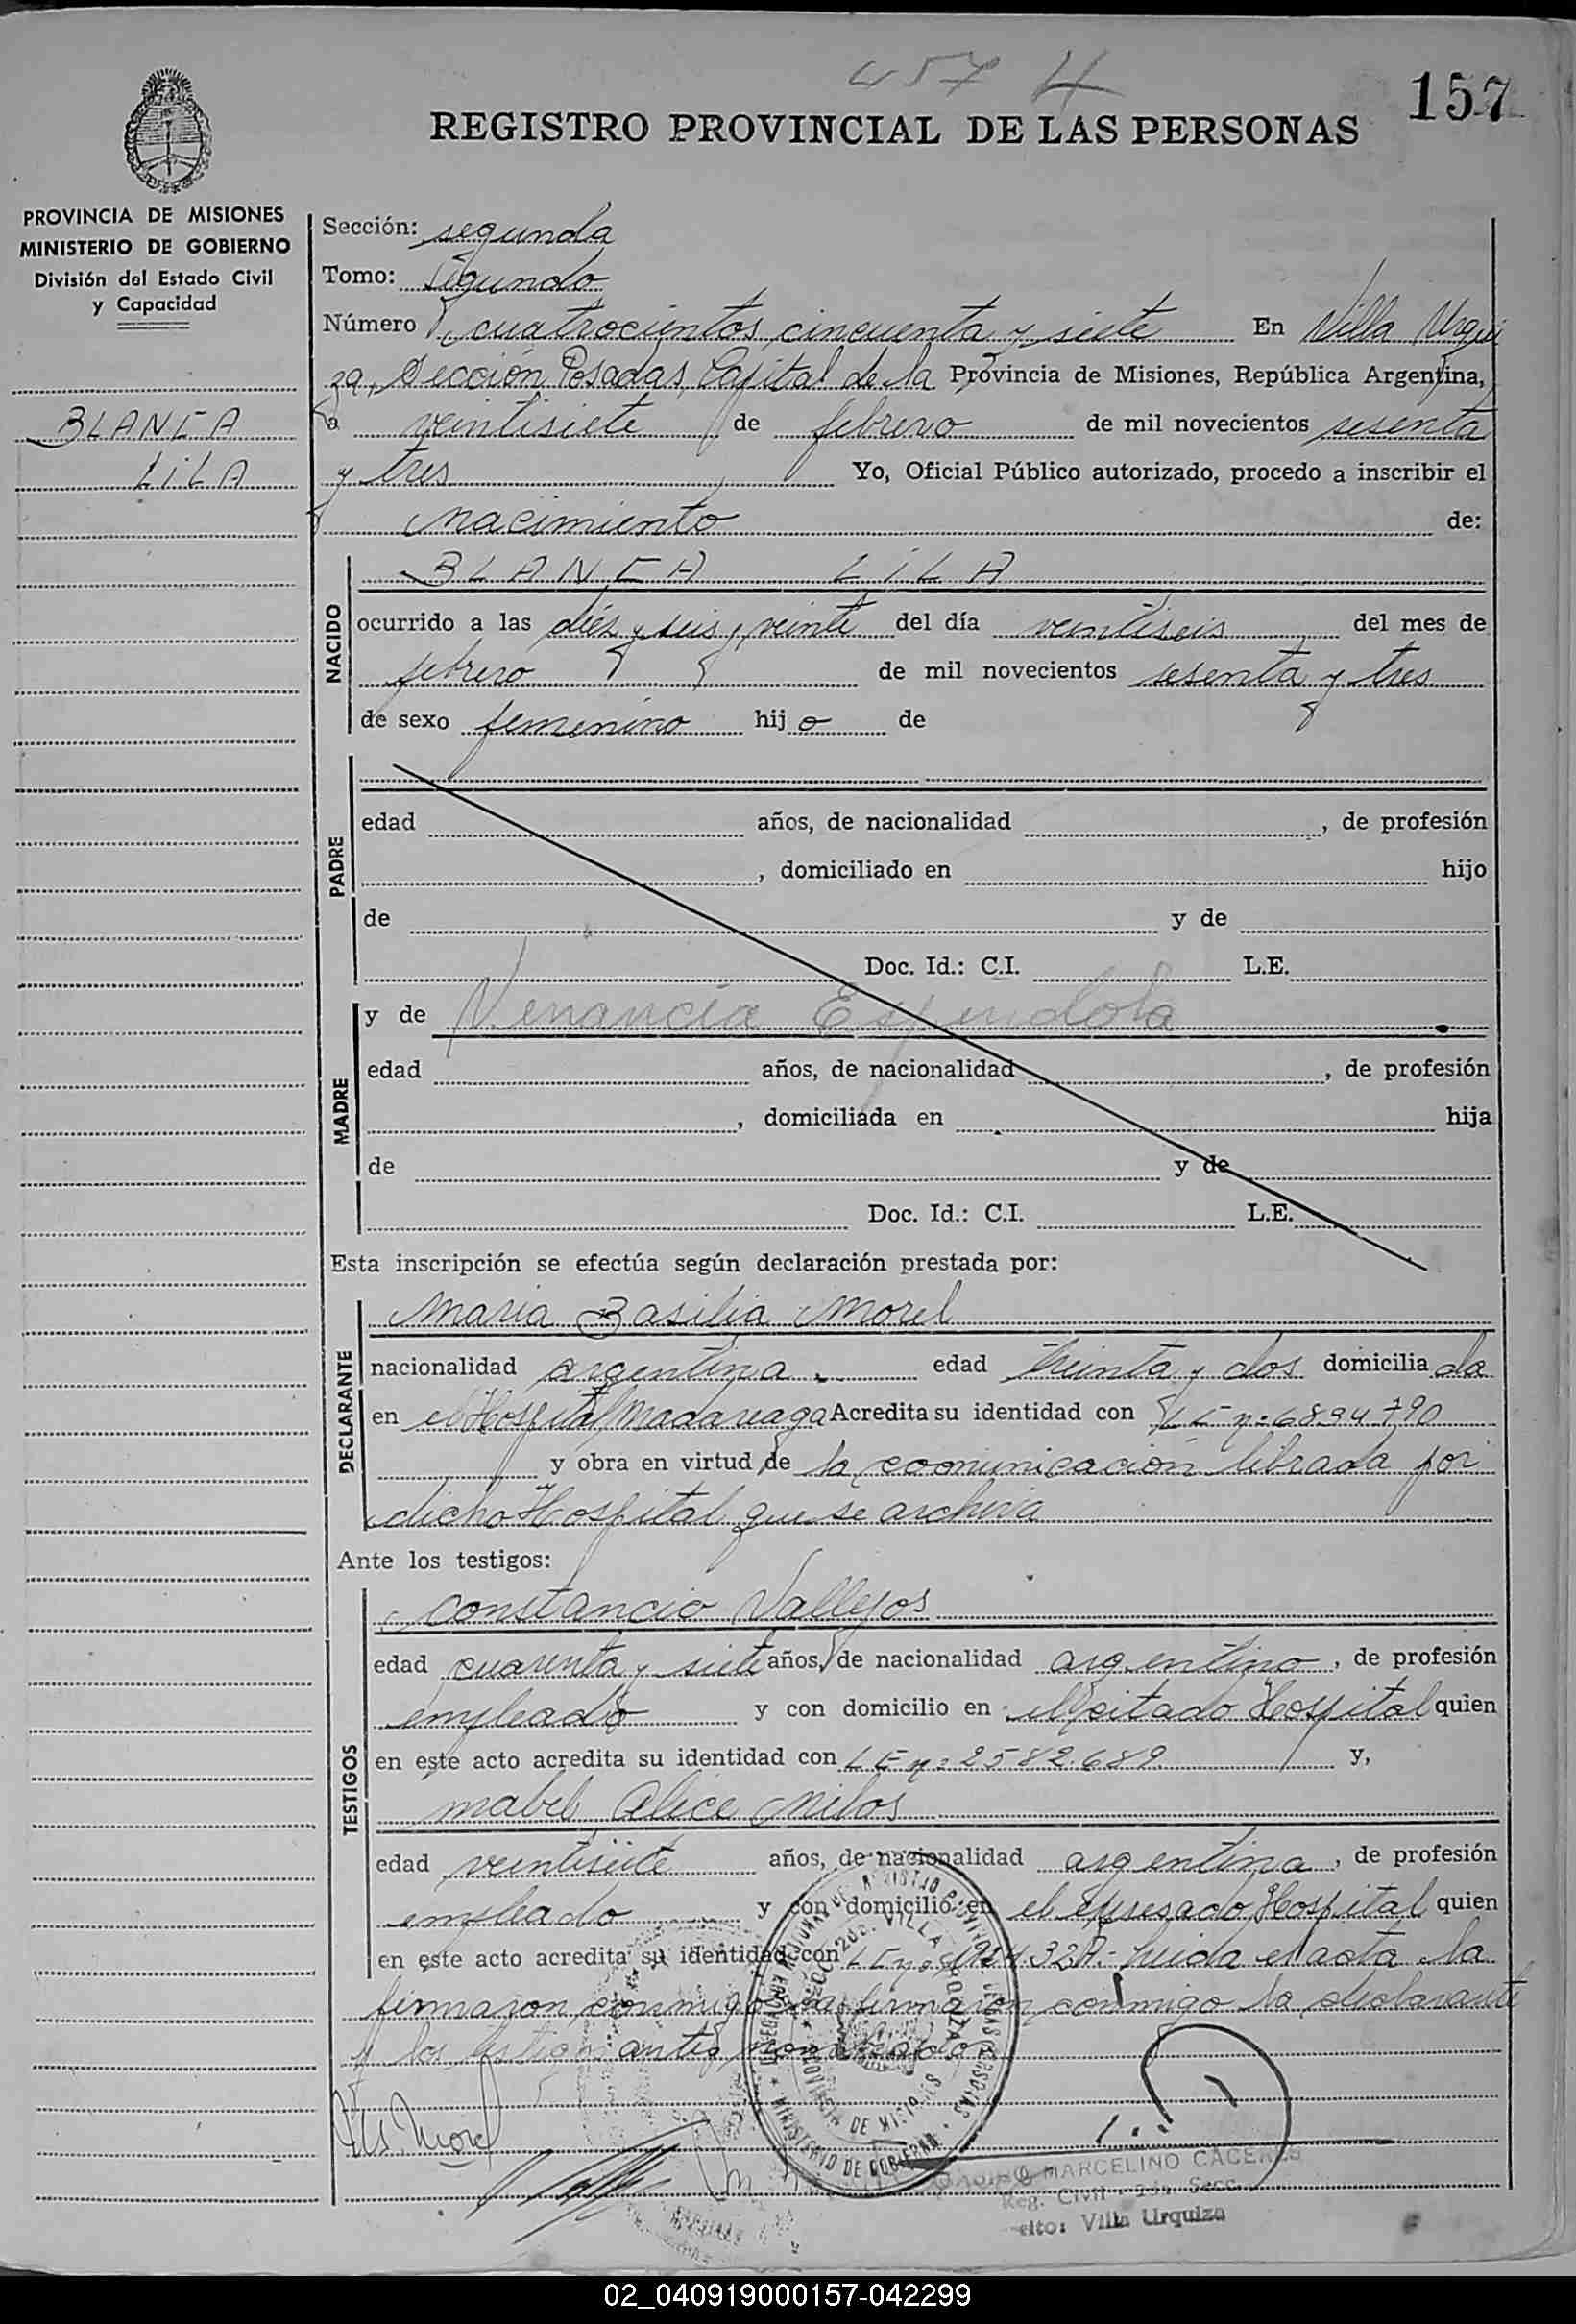 457 4
157
REGISTRO PROVINCIAL DE LAS PERSONAS
PROVINCIA DE MISIONES
MINISTERIO DE GOBIERNO
División del Estado Civil
y Capacidad
BLANCA
LILA
Sección: segunda
Tomo: segundo
Número cuatrocientos cincuenta y siete En Villa Urqui
za, Sección Posadas, Capital de la Provincia de Misiones, República Argentina,
a veintisiete de febrero de mil novecientos sesenta
y tres Yo, Oficial Público autorizado, procedo a inscribir el
nacimiento de:
NACIDO
BLANCA LILA
ocurrido a las diéz y seis y veinte del día veintiseis del mes de
febrero de mil novecientos sesenta y tres
de sexo femenino hij o de
PADRE
edad años, de nacionalidad , de profesión
, domiciliado en hijo
de y de
Doc. Id.: C.I. L.E.
MADRE
y de Venancia Espindola
edad años, de nacionalidad , de profesión
, domiciliada en hija
de y de
Doc. Id.: C.I. L.E.
Esta inscripción se efectúa según declaración prestada por:
DECLARANTE
Maria Basilia Morel
nacionalidad argentina edad treinta y dos domicilia da
en el Hospital Madariaga Acredita su identidad con LE nº 6894790
y obra en virtud de la comunicación librada por
dicho Hospital que se archiva
Ante los testigos:
TESTIGOS
Constancio Vallejos
edad cuarenta y siete años, de nacionalidad argentino, de profesión
empleado y con domicilio en el citado Hospital quien
en este acto acredita su identidad con LE nº 2582.689 y,
Mabel Alice Milos
edad veintisiete años, de nacionalidad argentina, de profesión
empleado y con domicilio en el expresado Hospital quien
en este acto acredita su identidad con LE nº leida el acta la
firmaron conmigo firmaron conmigo la declarante
y los testigos antes nombrados
Morel
MINISTERIO DE GOBIERNO
PROVINCIA DE MISIONES
MARCELINO CACERES
Reg. Civil Secc.
cito: Villa Urquiza
02_040919000157-042299